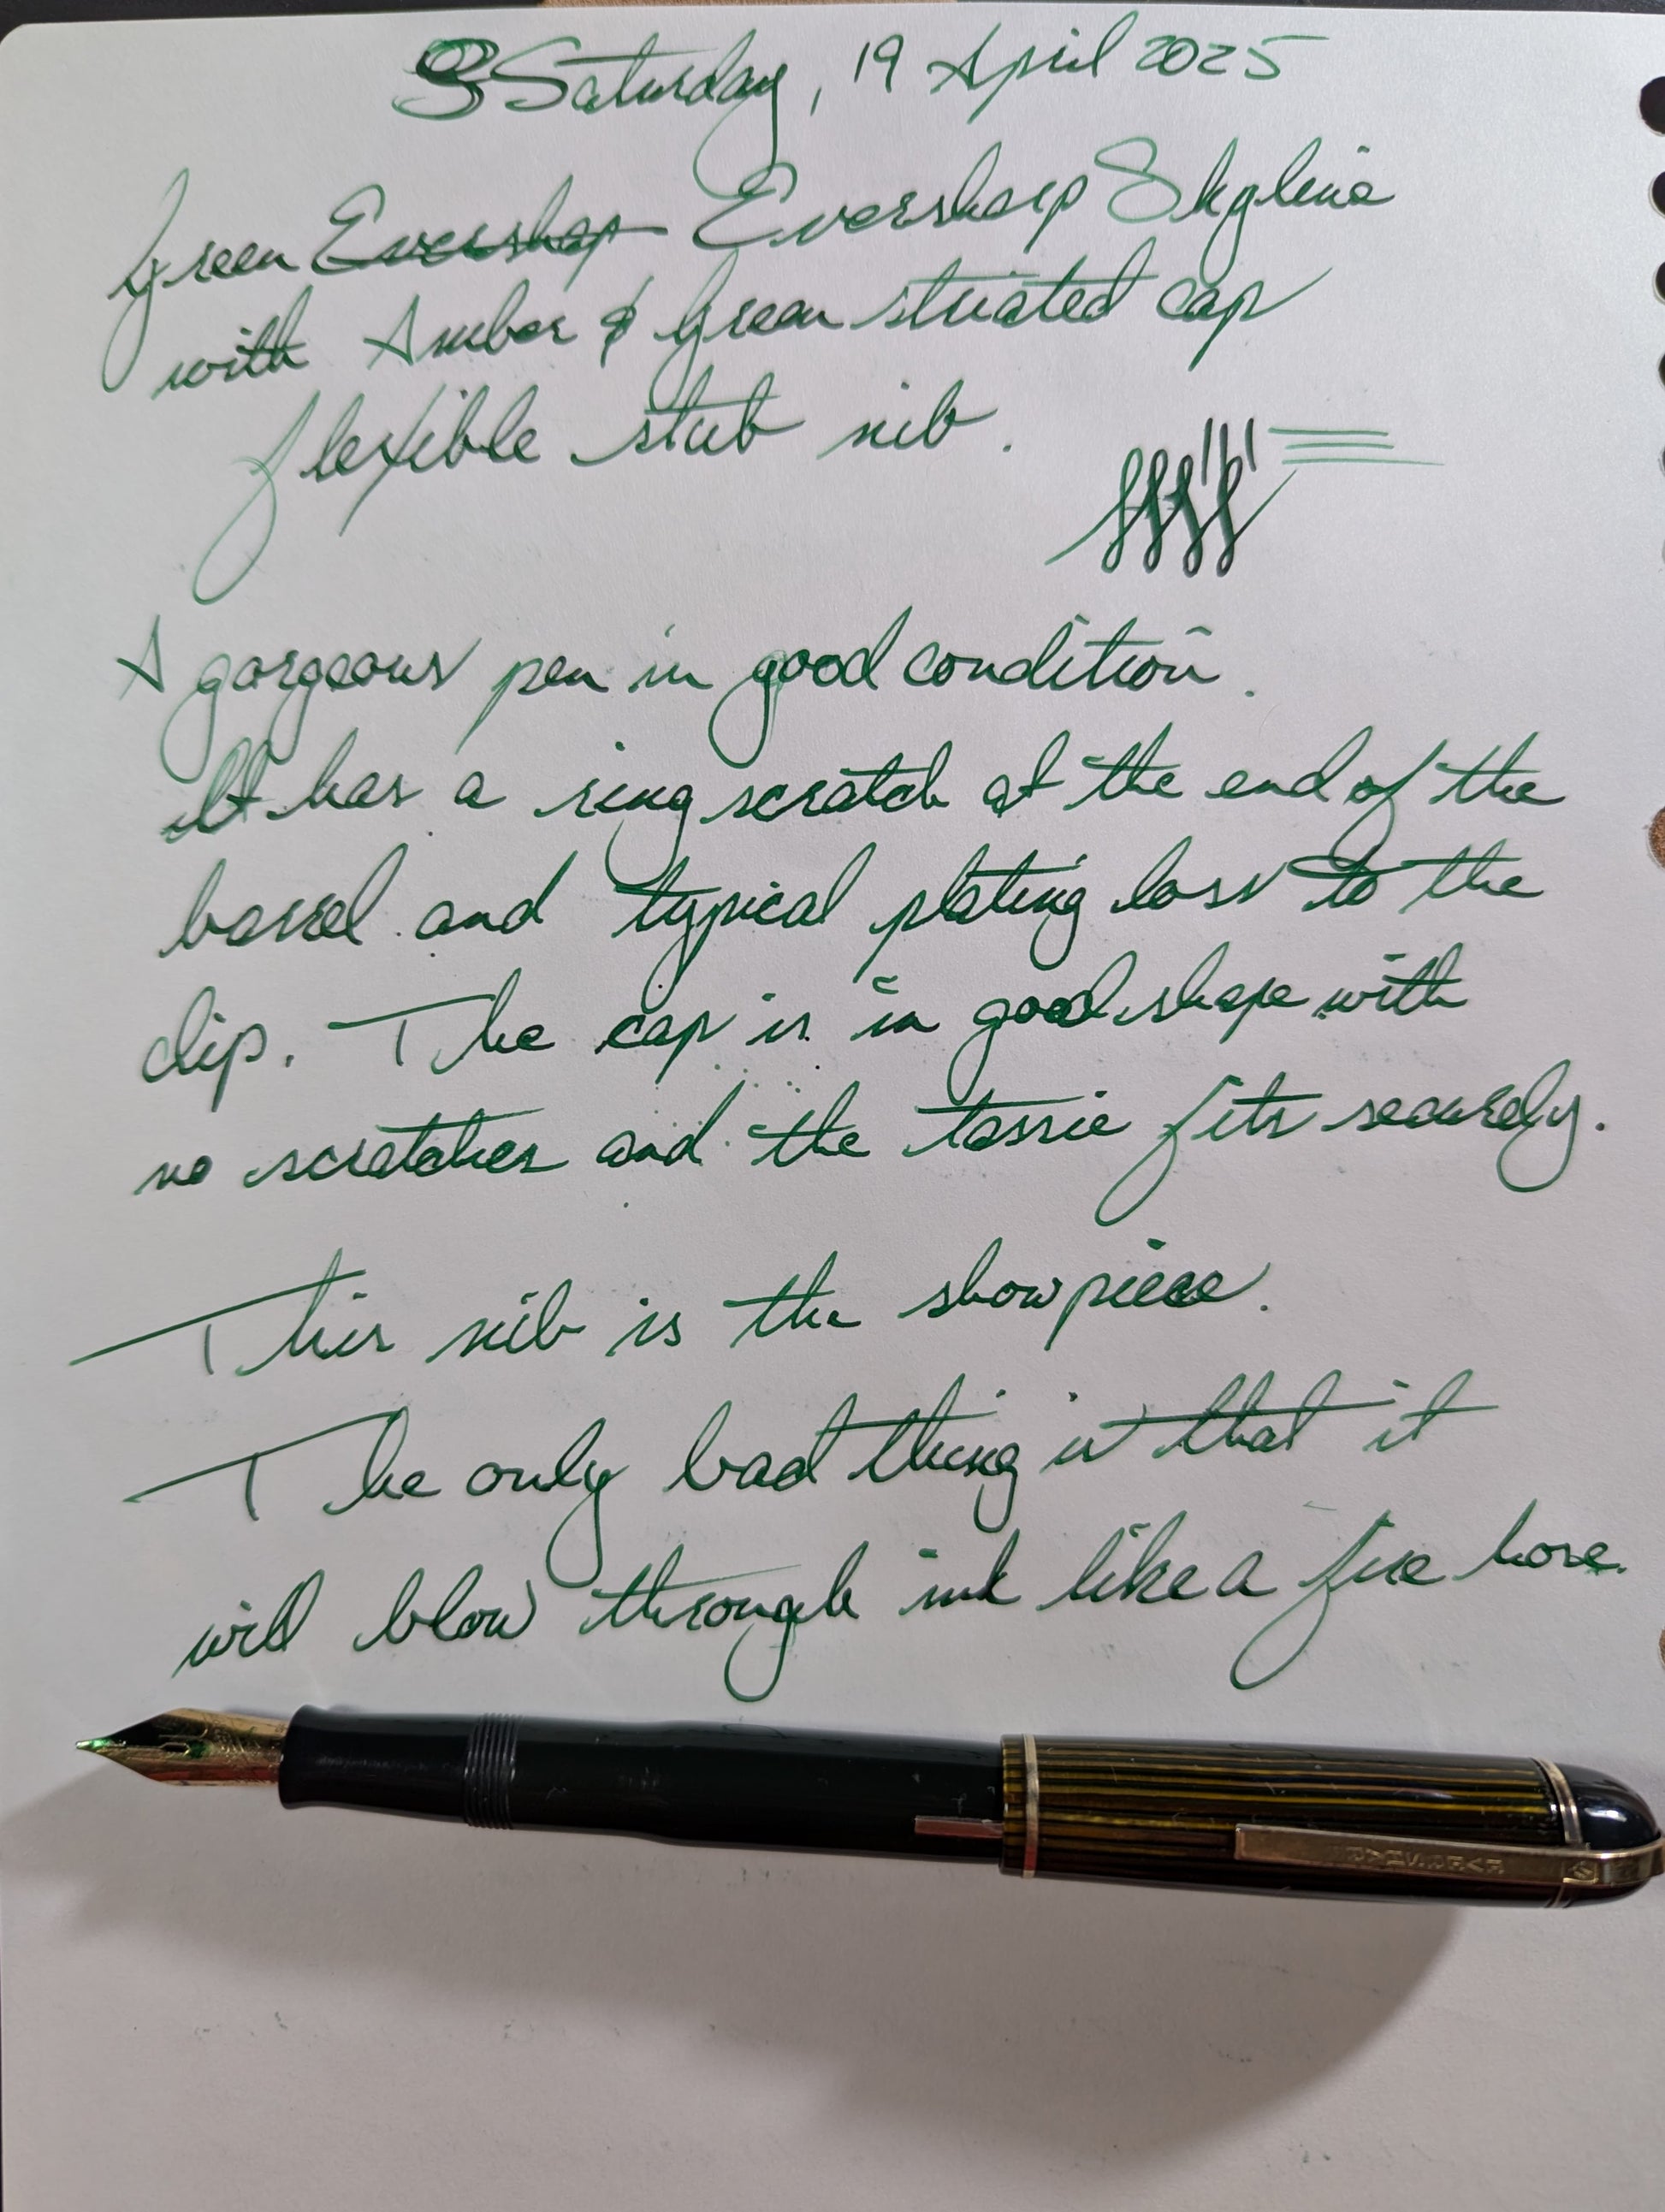 Saturday, 19 April 2025
Green Evershap Eversharp Skyline
with Amber & Green striated cap
flexible stub nib.
A gorgeous pen in good condition.
It has a ring scratch at the end of the
barrel and typical plating loss to the
clip. The cap is in good shape with
no scratches and the tassie fits securely.
This nib is the showpiece.
The only bad thing is that it
will blow through ink like a fire hose.
EVERSHARP